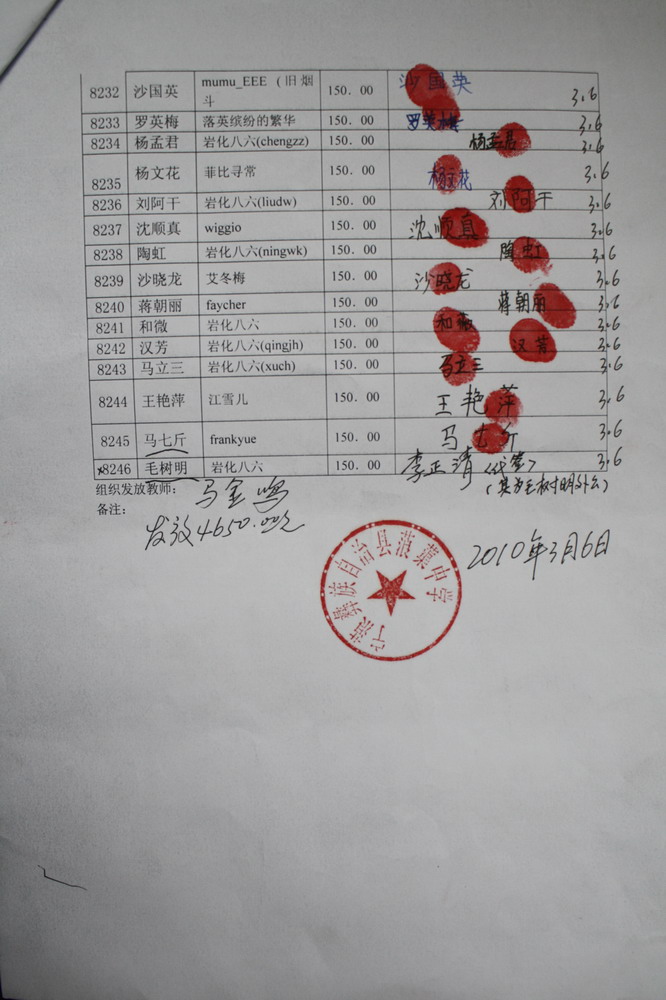 8232 沙国英 mumu_EEE (旧烟斗 150.00 沙国英 3.6
8233 罗英梅 落英缤纷的繁华 150.00 罗英梅 3.6
8234 杨孟君 岩化八六(chengzz) 150.00 杨孟君 3.6
8235 杨文花 菲比寻常 150.00 杨文花 3.6
8236 刘阿干 岩化八六(liudw) 150.00 刘阿干 3.6
8237 沈顺真 wiggio 150.00 沈顺真 3.6
8238 陶虹 岩化八六(ningwk) 150.00 陶虹 3.6
8239 沙晓龙 艾冬梅 150.00 沙晓龙 3.6
8240 蒋朝丽 faycher 150.00 蒋朝丽 3.6
8241 和微 岩化八六 150.00 和薇 3.6
8242 汉芳 岩化八六(qingjh) 150.00 汉芳 3.6
8243 马立三 岩化八六(xuch) 150.00 马立三 3.6
8244 王艳萍 江雪儿 150.00 王艳萍 3.6
8245 马七斤 frankyue 150.00 马七斤 3.6
x8246 毛树明 岩化八六 150.00 李正清 (代签) 3.6
组织发放教师：马金鸣
备注：
发放4650.00元
2010年3月6日
宁蒗彝族自治县 中学